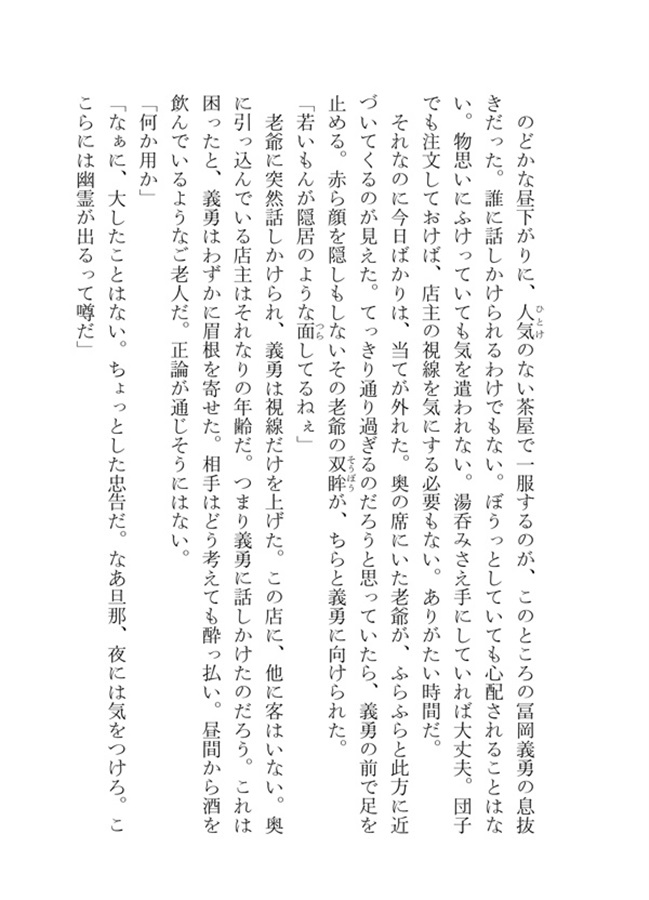 のどかな昼下がりに、人気のない茶屋で一服するのが、このところの冨岡義勇の息抜
きだった。誰に話しかけられるわけでもない。ぼうっとしていても心配されることはな
い。物思いにふけっていても気を遣われない。湯呑みさえ手にしていれば大丈夫。団子
でも注文しておけば、店主の視線を気にする必要もない。ありがたい時間だ。
　それなのに今日ばかりは、当てが外れた。奥の席にいた老爺が、ふらふらと此方に近
づいてくるのが見えた。てっきり通り過ぎるのだろうと思っていたら、義勇の前で足を
止める。赤ら顔を隠しもしないその老爺の双眸が、ちらと義勇に向けられた。
「若いもんが隠居のような面してるねぇ」
　老爺に突然話しかけられ、義勇は視線だけを上げた。この店に、他に客はいない。奥
に引っ込んでいる店主はそれなりの年齢だ。つまり義勇に話しかけたのだろう。これは
困ったと、義勇はわずかに眉根を寄せた。相手はどう考えても酔っ払い。昼間から酒を
飲んでいるようなご老人だ。正論が通じそうにはない。
「何か用か」
「なぁに、大したことはない。ちょっとした忠告だ。なあ旦那、夜には気をつけろ。こ
こらには幽霊が出るって噂だ」
ひとけ
そうぼう
つら